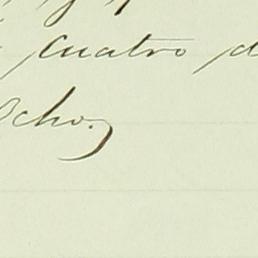 cuatro d
Ocho.